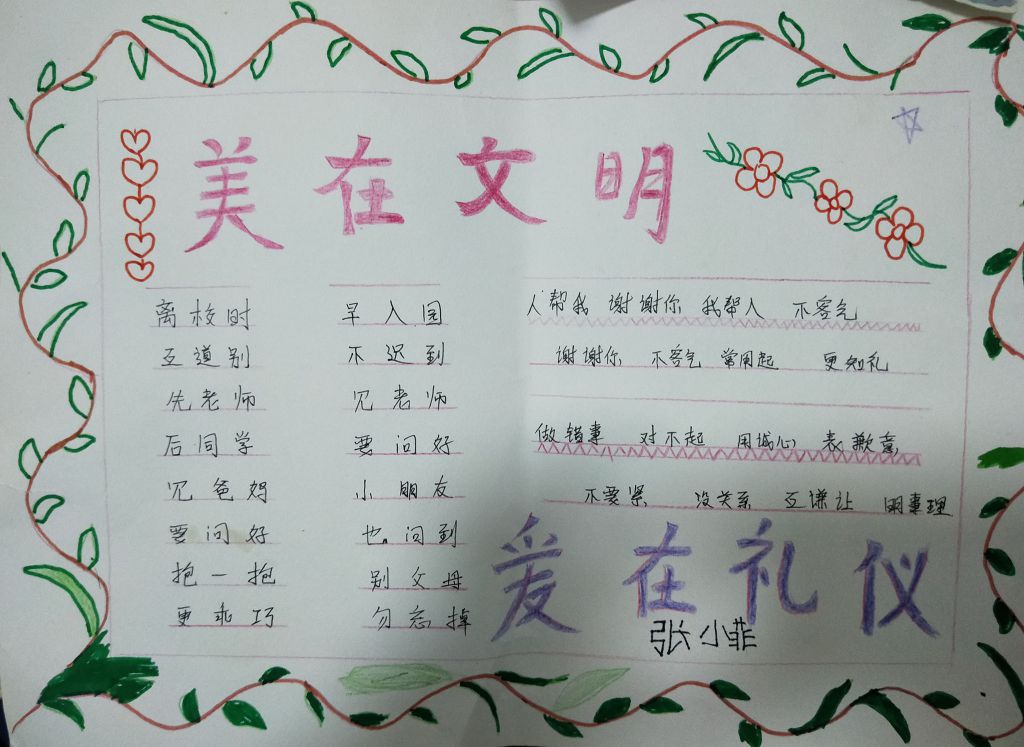 美在文明
离校时
互道别
先老师
后同学
见爸妈
要问好
抱一抱
更乖巧
早入园
不迟到
见老师
要问好
小朋友
也问到
别父母
勿忘掉
人帮我 谢谢你 我帮人 不客气
谢谢你 不客气 常用起 更知礼
做错事 对不起 用诚心 表歉意
不要紧 没关系 互谦让 明事理
爱在礼仪
张小菲